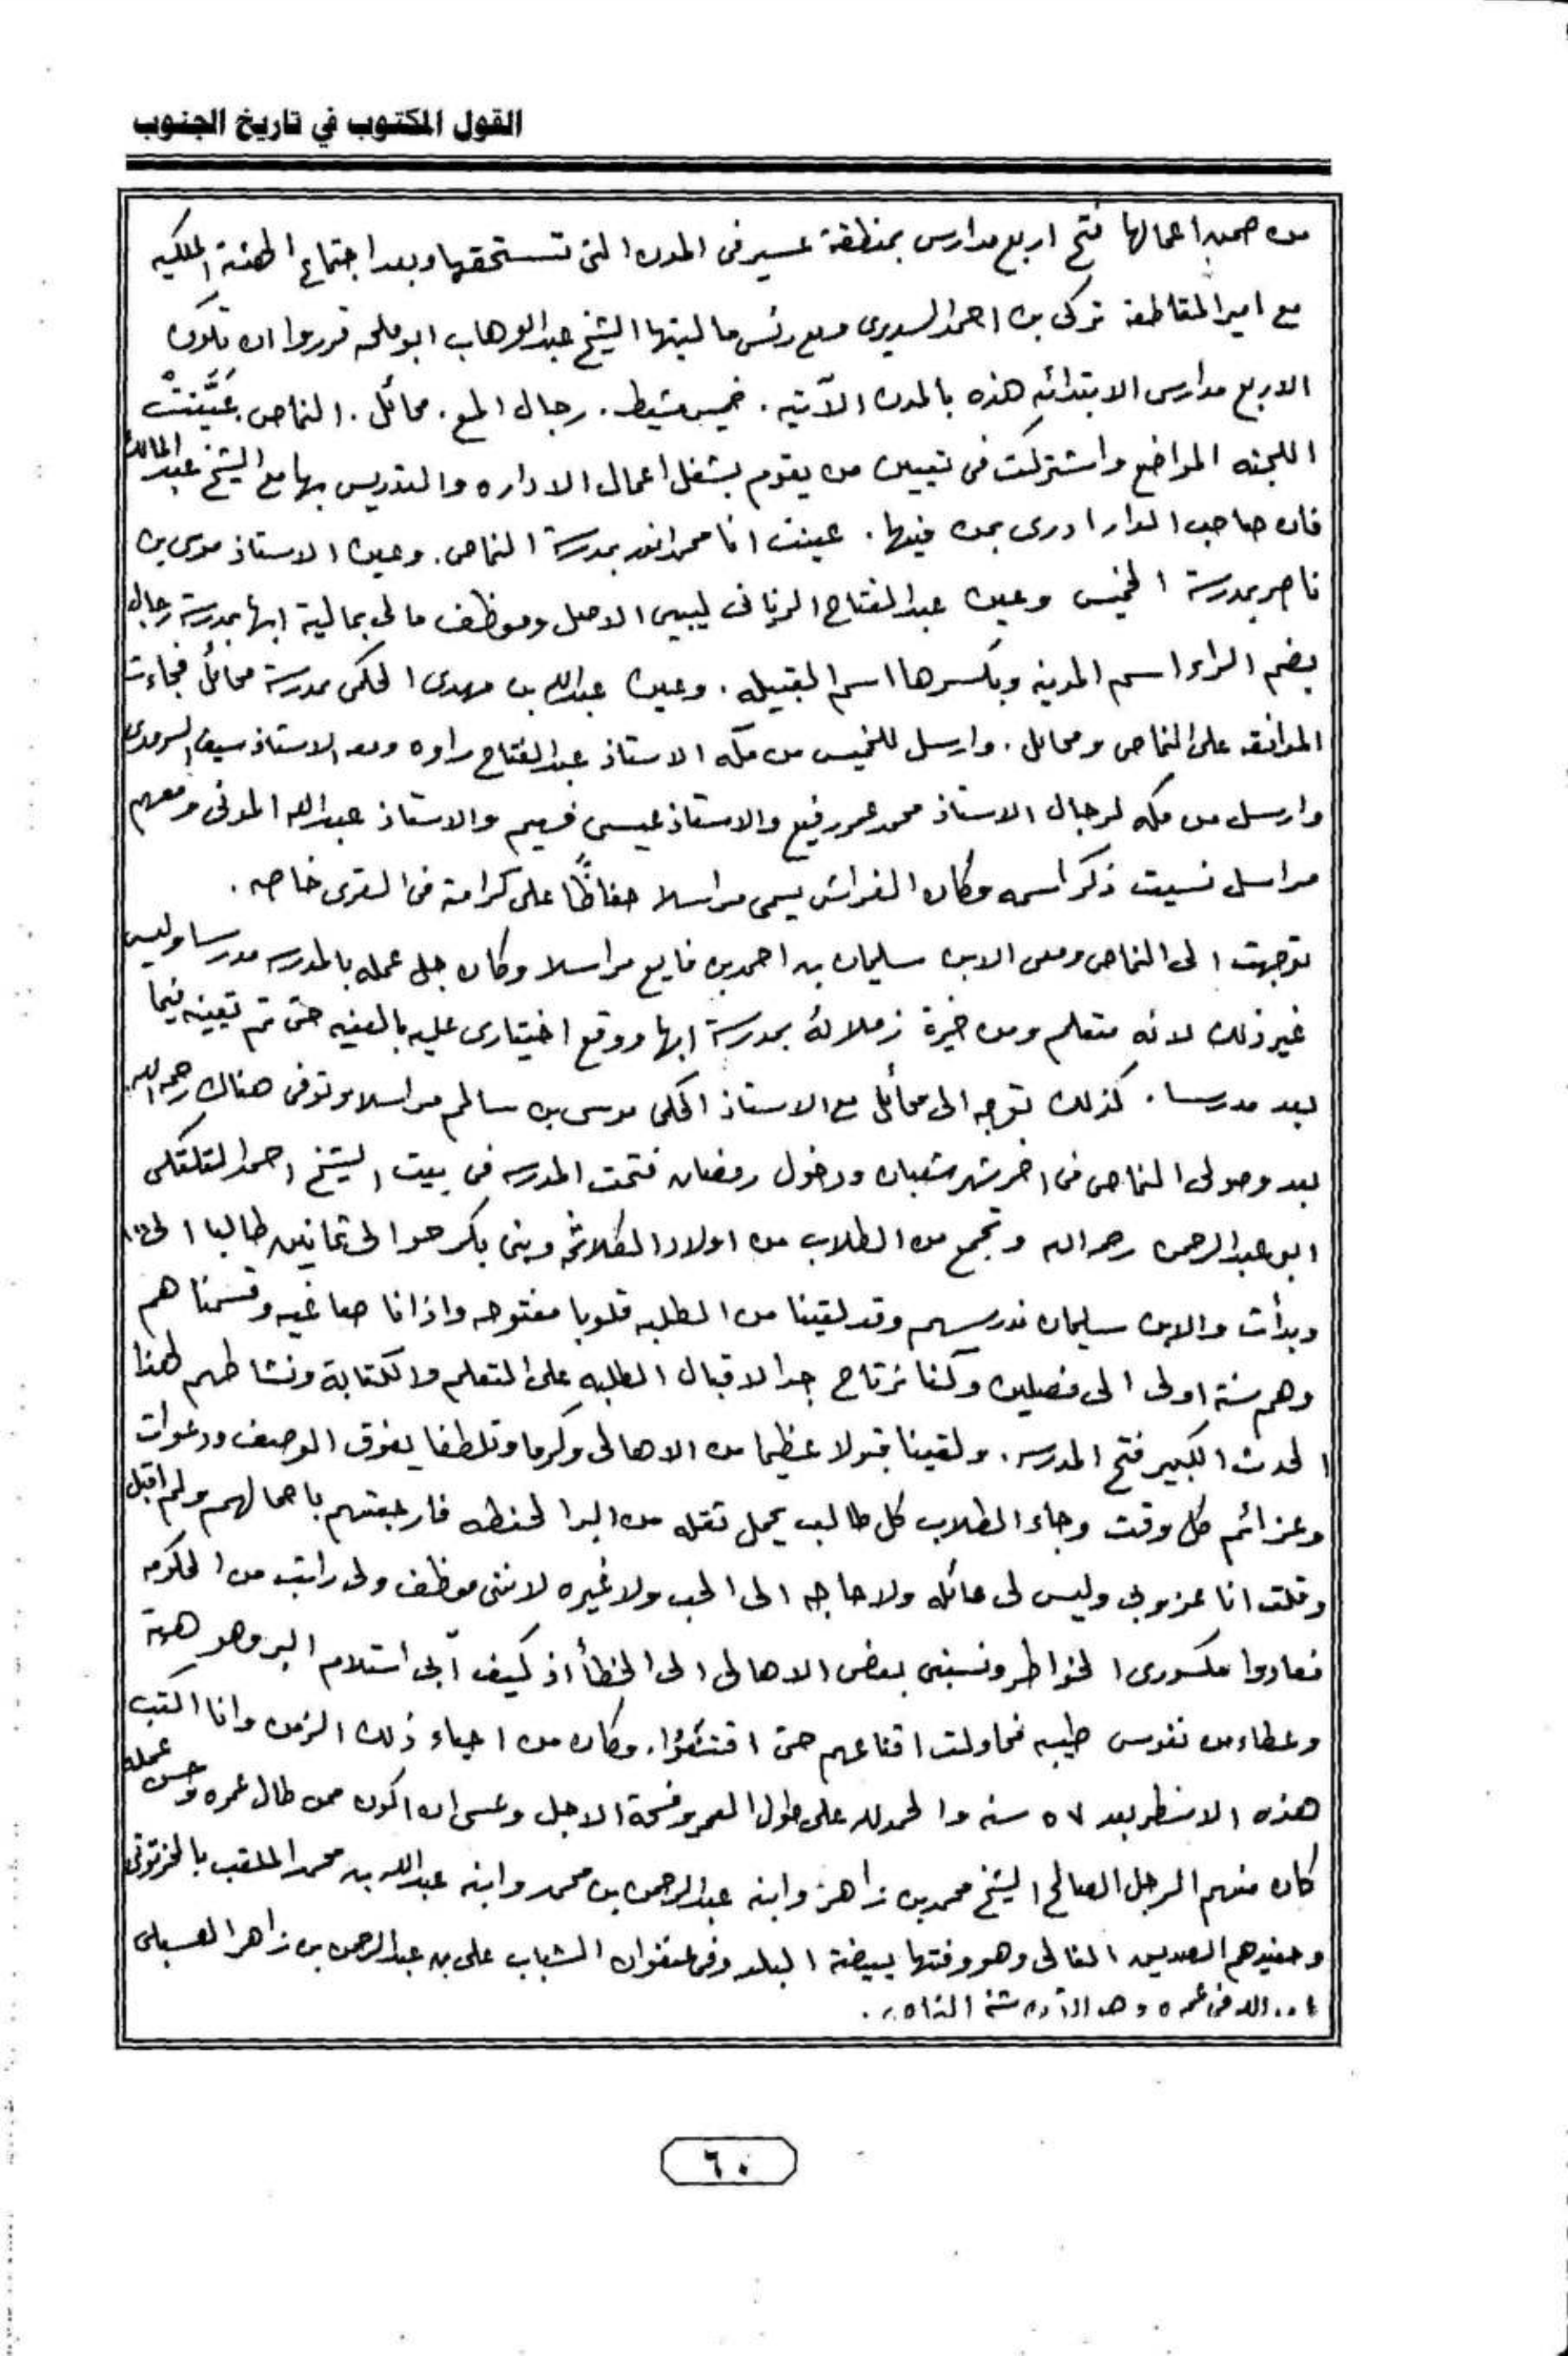 القول المكتوب في تاريخ الجنوب
من صميم اعمالها فتح اربع مدارس بمنطقة عسير فى المدن التى تستحقها وبعد اجتماع الهيئة الملكيه
مع امير المقاطعة تركى بن احمد السديرى ومع رئيس ماليتها الشيخ عبد الوهاب ابو ملحه قرروا ان تكون
الاربع مدارس الابتدائيه هذه بالمدن الآتيه . خميس مشيط . رجال المع . محائل . النماص . عَيَّنَتْ
اللجنه المواضع واشتركت فى تعيين من يقوم بشغل اعمال الاداره والتدريس بها مع الشيخ عبد المالك
فان صاحب الدار ادرى بمن فيها . عينت انا محمد انور بمدرسة النماص . وعين الاستاذ موسى بن
ناصر بمدرسة الخميس وعين عبد الفتاح الزنانى ليبيى الاصل وموظف مالى بمالية ابها بمدرسة رجال
بضم الراء اسم المدينه وبكسرها اسم القبيله . وعين عبد الله بن مهدى الحكمى بمدرسة محائل فجاءت
الموافقه على النماص ومحائل . وارسل للخميس من مكه الاستاذ عبد الفتاح راوه ومعه الاستاذ سيف
وارسل من مكه لرجال الاستاذ محمد عمر رفيع والاستاذ عيسى فهيم والاستاذ عبد الله المونى ومعهم
مراسل نسيت ذكر اسمه وكان الفراش يسمى مراسلا حفاظًا على كرامة فى القرى خاصه .
توجهت الى النماص ومعى الابن سليمان بن احمد بن فايع مراسلا وكان جل عمله بالمدرسه مدرسا وليس
غير ذلك لانه متعلم ومن خيرة زملائه بمدرسة ابها ووقع اختيارى عليه بالعينه حتى تم تعيينه فيما
بعد مدرسا . كذلك توجه الى محائل مع الاستاذ الحكمى موسى بن سالم مراسلا وتوفى هناك رحمه الله
بعد وصولى النماص فى اخر شهر شعبان ودخول رمضان فتحت المدرسه فى بيت الشيخ احمد
ابو عبد الرحمن رحمه الله وتجمع من الطلاب من اولاد الكلاثمه وبنى بكر حوالى ثمانين طالبا الى
وبدأت والابن سليمان ندرسهم وقد لقينا من الطلبه قلوبا مفتوحه واذانا صاغيه وقسمناهم
وهم سنة اولى الى فصلين وكنا نرتاح جدا لاقبال الطلبه على التعلم والكتابة ونشاطهم لهذا
الحدث الكبير فتح المدرسه . ولقينا قبولا عظيما من الاهالى وكرما وتلطفا يفوق الوصف ودعوات
وعزائم كل وقت وجاء الطلاب كل طالب يحمل ثقله من البر الحنطه فارجعتهم باحمالهم ولم اقبل
وقلت انا عزوبى وليس لى عائله ولا حاجه الى الحب ولا غيره لاننى موظف ولى راتب من الحكومه
فعادوا مكسورى الخواطر ونسبنى بعض الاهالى الى الخطأ اذ كيف آبى استلام البر وهو هبة
وعطاء من نفوس طيبه فحاولت اقناعهم حتى اقتنعوا . وكان من احياء ذلك الزمن وانا اكتب
هذه الاسطر بعد ٥٧ سنه والحمد لله على طول العمر وفسحة الاجل وعسى ان اكون ممن طال عمره وحسن عمله
كان منهم الرجل الصالح الشيخ محمد بن زاهر وابنه عبد الرحمن بن محمد وابنه عبد الله بن محمد الملقب
وحفيدهم الصديق الغالى وهو وقتها بيضة البلد وفى عنفوان الشباب على بن عبد الرحمن بن زاهر العسبلى
الله فى عمره وهو الآن
٦٠